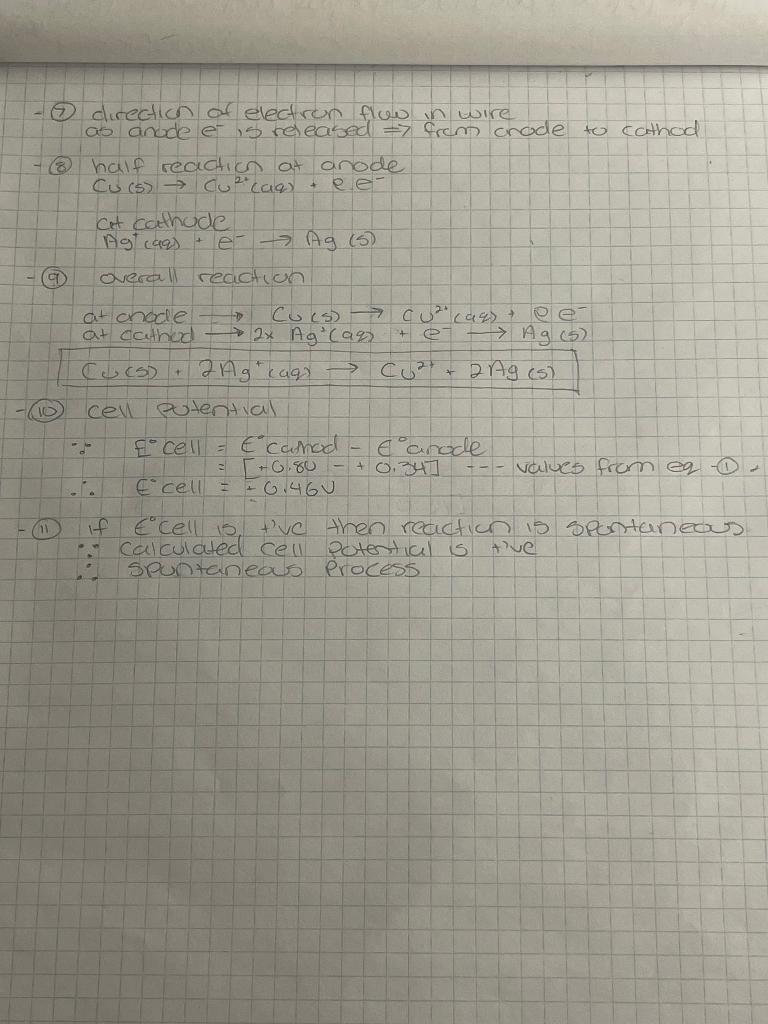 - ⑦ direction of electron flow in wire
at anode e⁻ is released => from anode to cathod
- ⑧ half reaction at anode
Cu (s) → Cu²⁺ (aq) + e.e⁻
at cathode
Ag⁺ (aq) + e⁻ → Ag (s)
- ⑨ overall reaction
at anode → Cu (s) → Cu²⁺ (aq) + e e⁻
at cathod → 2x Ag⁺ (aq) + e⁻ → Ag (s)
Cu (s) + 2Ag⁺ (aq) → Cu²⁺ + 2Ag (s)
- ⑩ cell potential
∵ E° cell = E° cathod - E° anode
= [+0.80 - + 0.34] --- values from eq - ① -
∴ E° cell = + 0.46V
- ⑪ if E° cell is +'ve then reaction is spontaneous
∵ calculated cell potential is +'ve
∴ spontaneous process